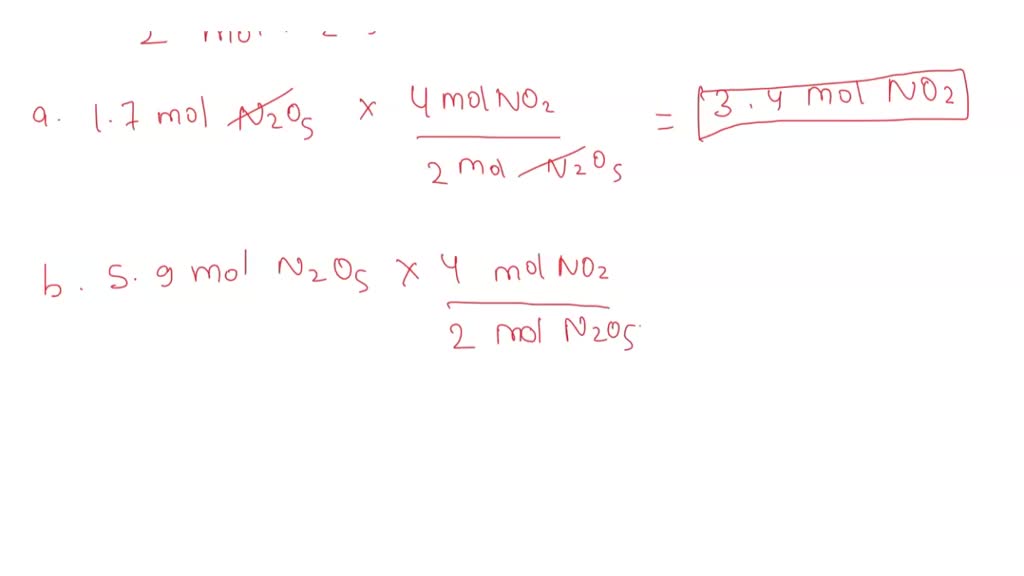 a. 1.7 mol N2O5 x 4 mol NO2 / 2 mol N2O5 = 3.4 mol NO2
b. 5.9 mol N2O5 x 4 mol NO2 / 2 mol N2O5